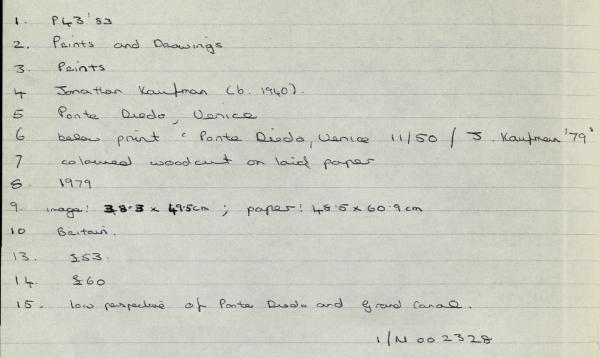 1. P43'53
2. Prints and Drawings
3. Prints
4 Jonathan Kaufman (b. 1940).
5 Ponte Diedo, Venice
6 below print "Ponte Diedo, Venice 11/50 / J. Kaufman '79"
7 coloured woodcut on laid paper
8. 1979
9. image: 38.3 x 49.5cm ; paper: 48.5 x 60.9cm
10 Britain.
13. £53.
14. £60
15. low perspective of Ponte Diedo and Grand Canal.
1/N 002328